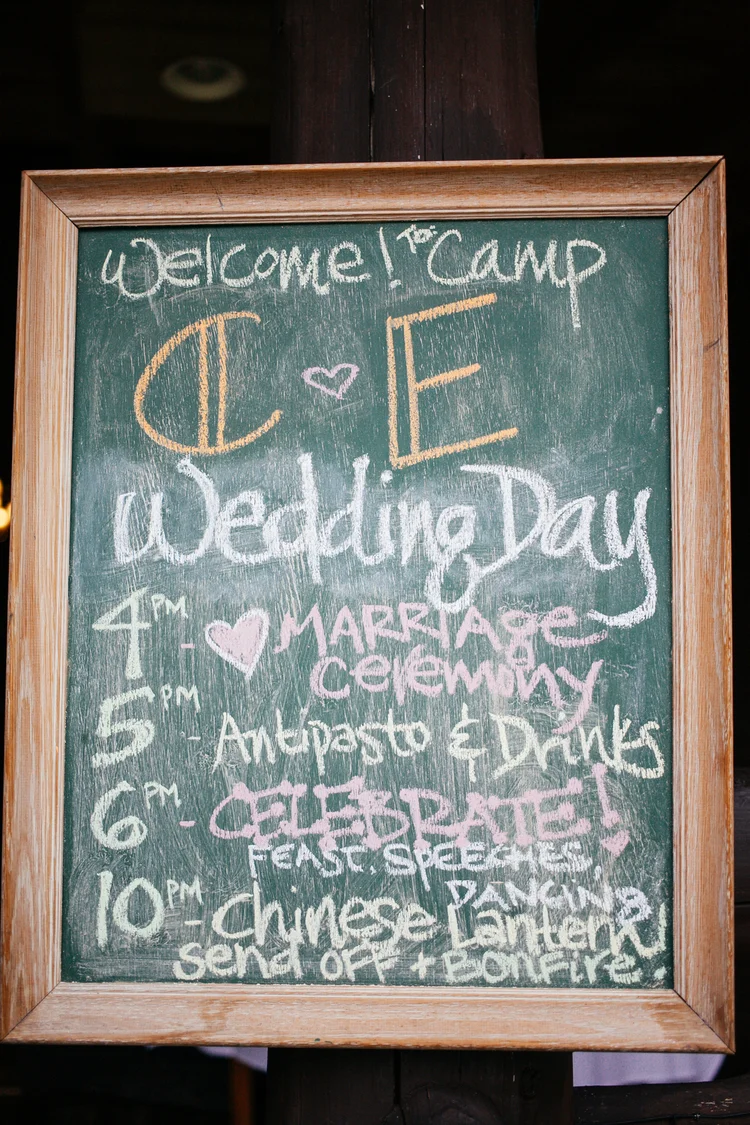 Welcome! To Camp
C E
Wedding Day
4PM - MARRIAge
ceremony
5PM - Antipasto & Drinks
6PM - CELEBRATE!
FEAST, SPEECHES,
DANCING
10PM - Chinese Lantern
send OFF + BONFire.